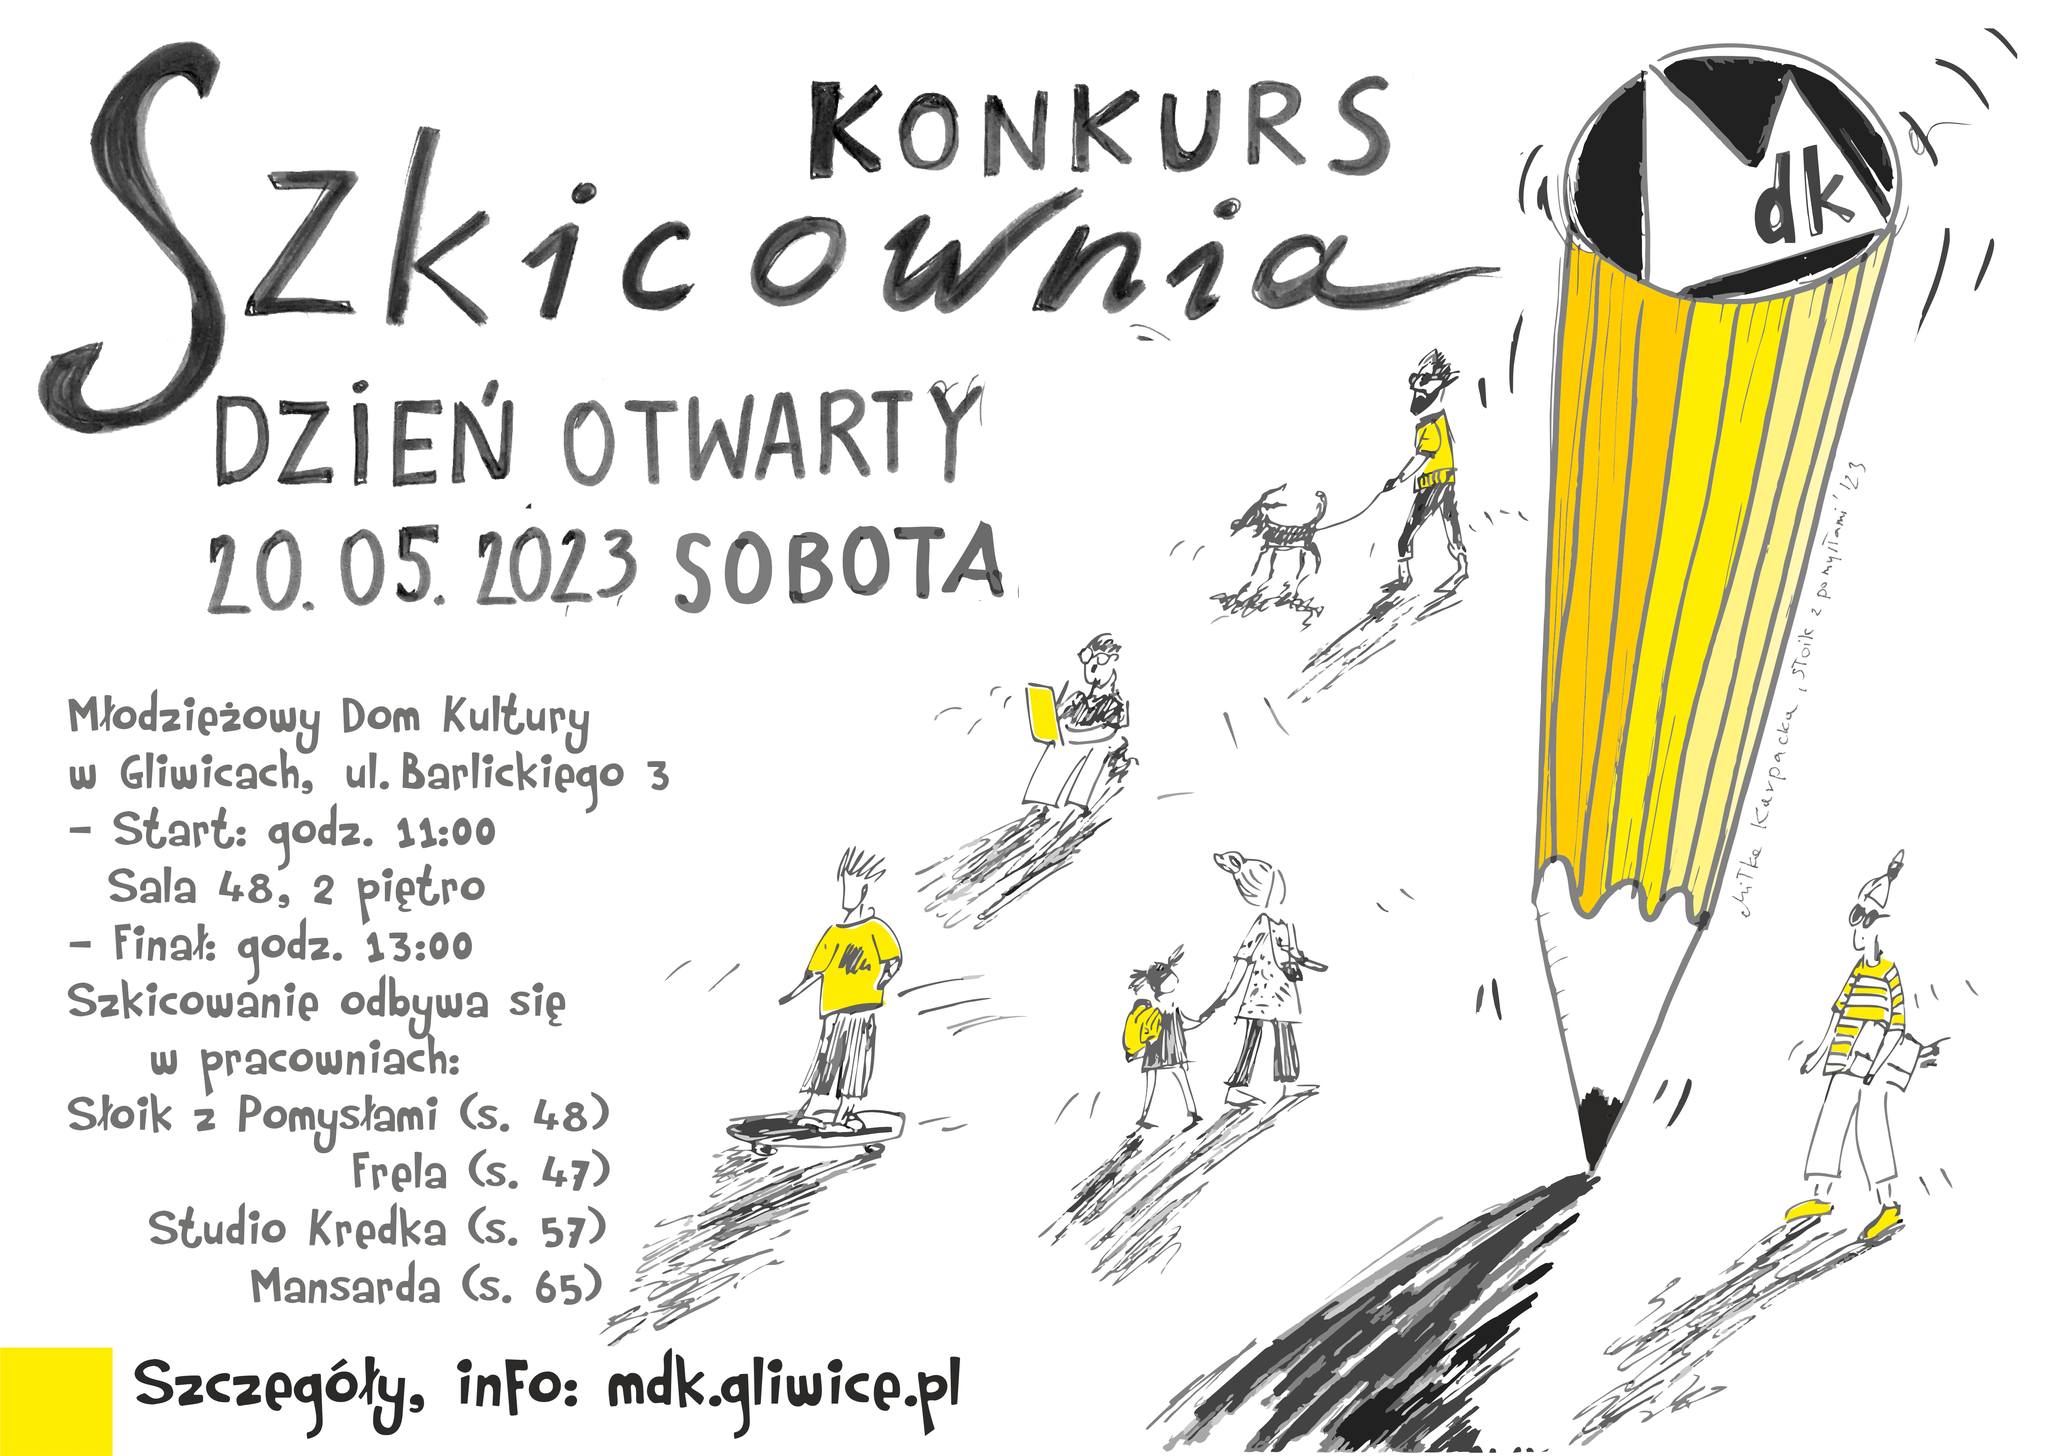 KONKURS
Szkicownia
DZIEŃ OTWARTY
20.05.2023 SOBOTA
Młodzieżowy Dom Kultury
w Gliwicach, ul. Barlickiego 3
– Start: godz. 11:00
Sala 48, 2 piętro
– Finał: godz. 13:00
Szkicowanie odbywa się
w pracowniach:
Słoik z Pomysłami (s. 48)
Frela (s. 47)
Studio Kredka (s. 57)
Mansarda (s. 65)
Szczegóły, info: mdk.gliwice.pl
M dk
Karpacka, słoik z pomysłami '23